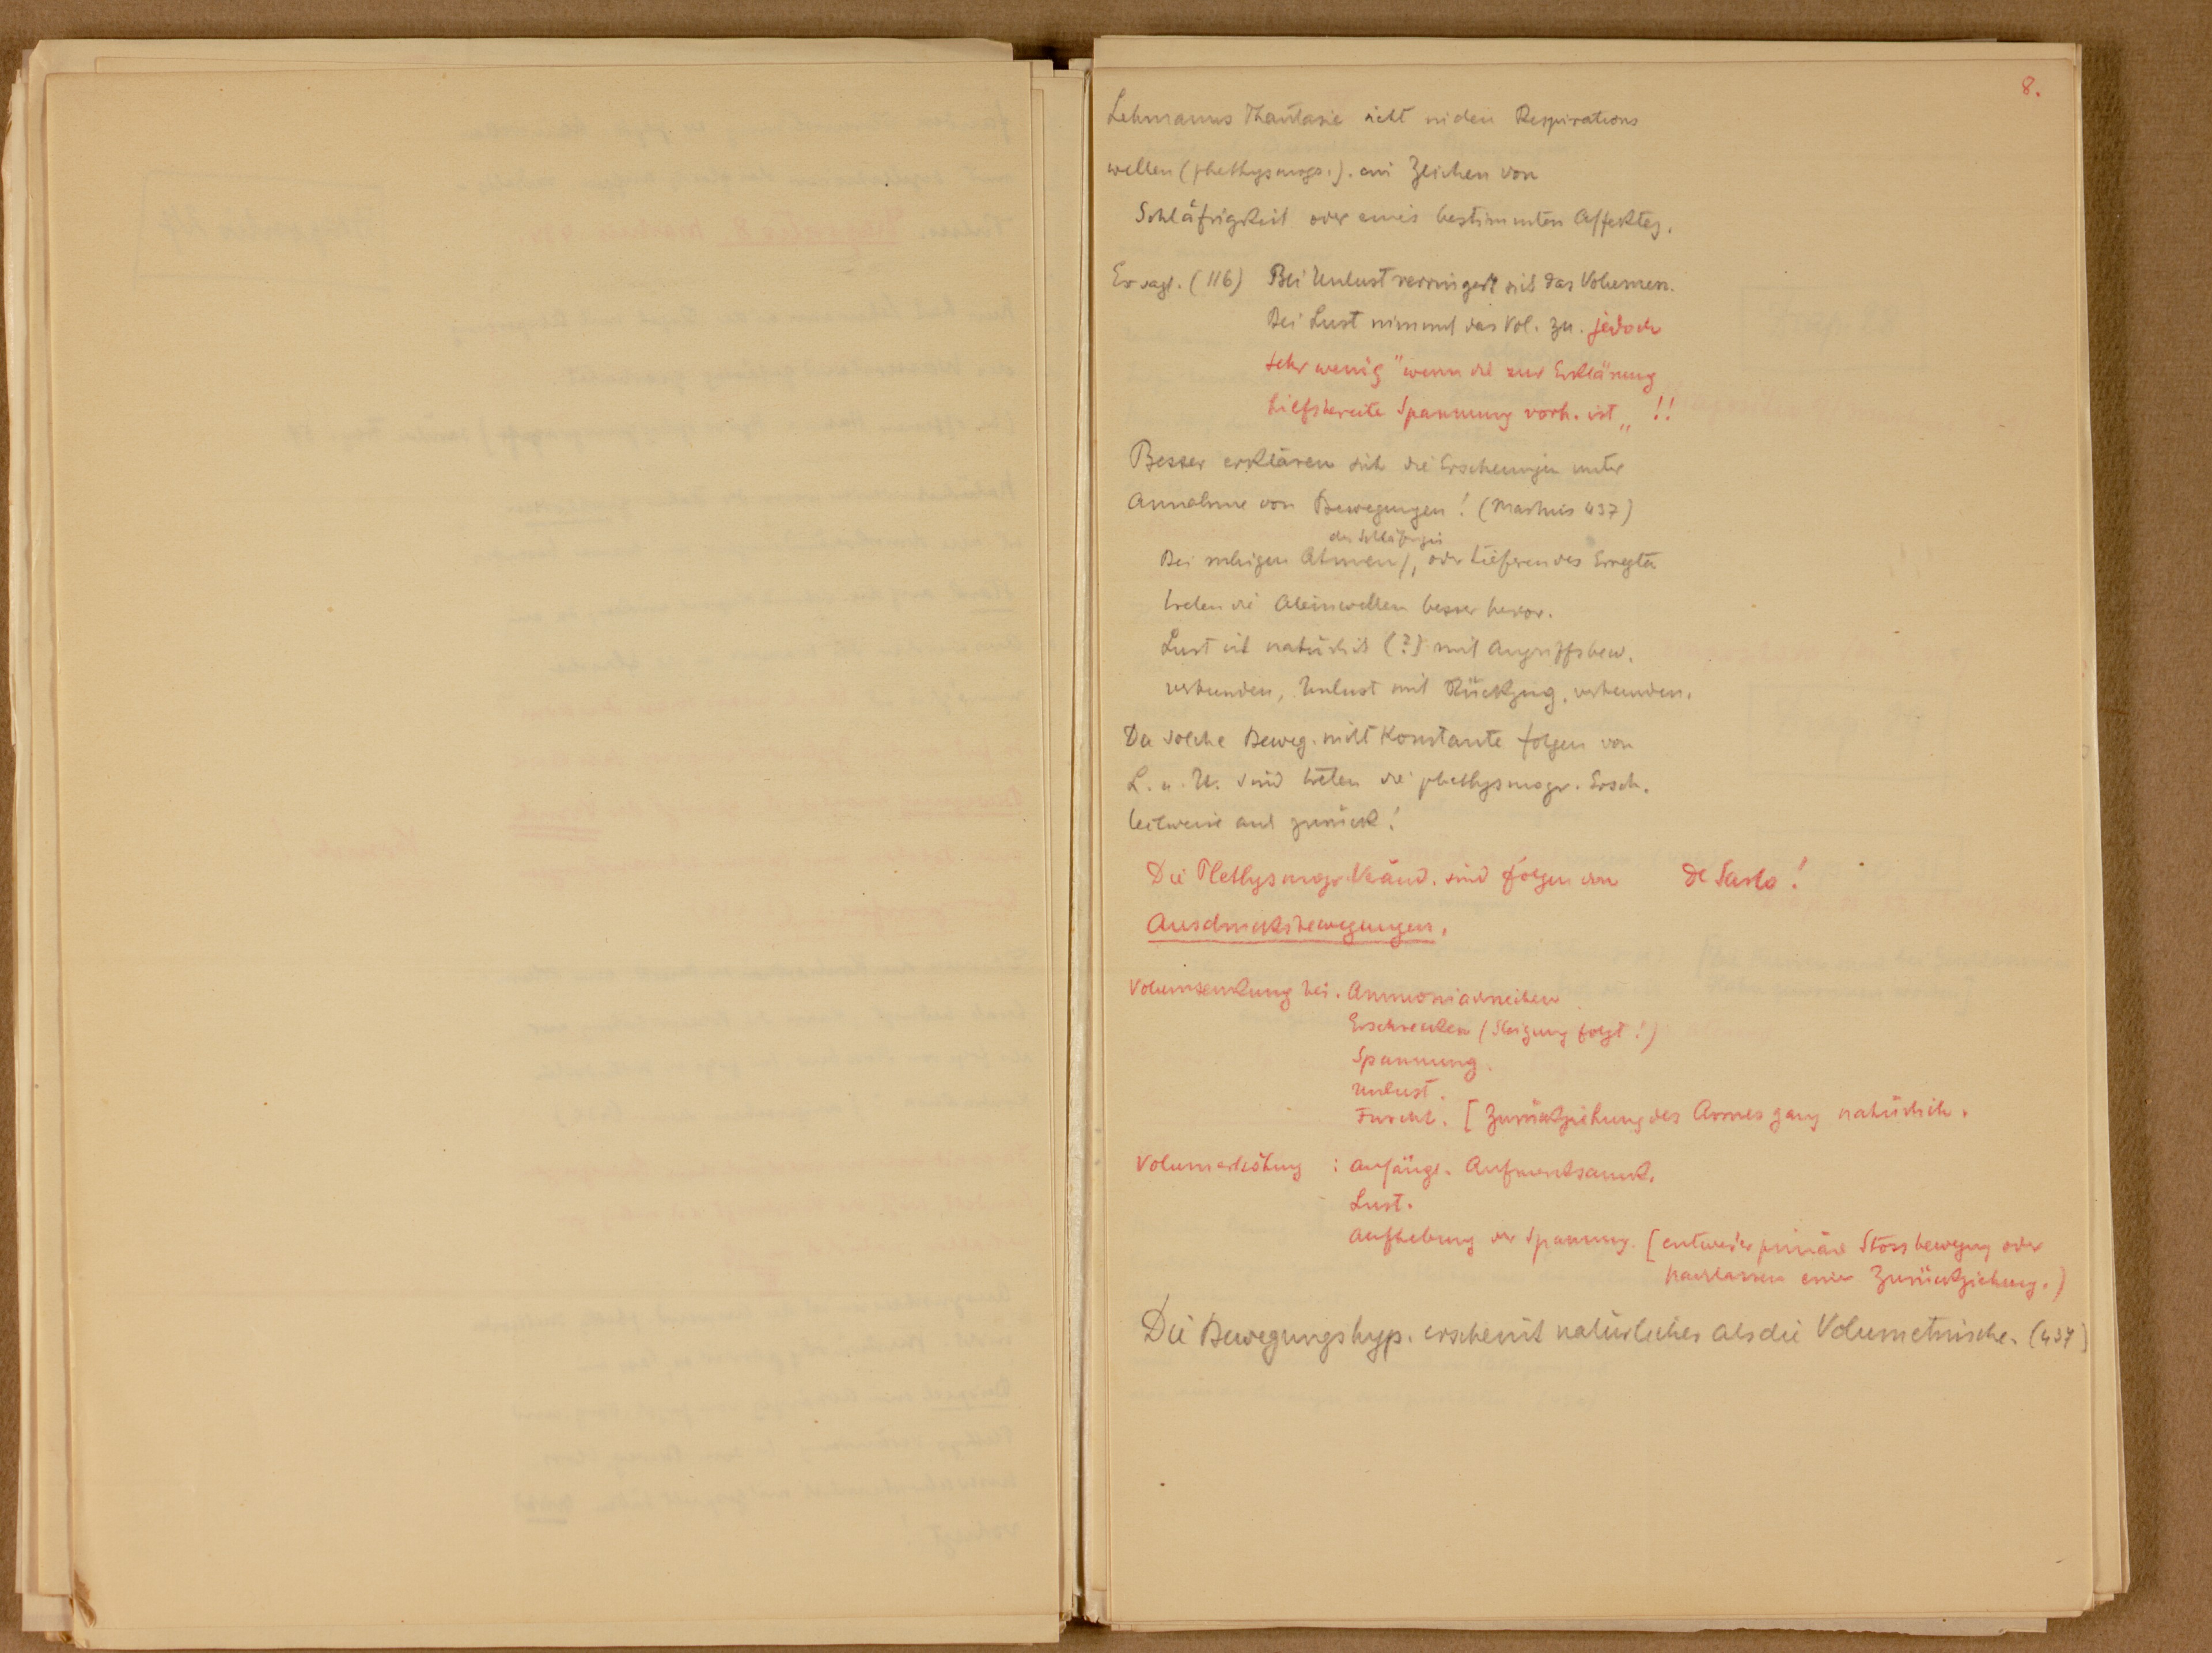 8.
Lehmanns Phantasie sieht in den Respirations
wellen (plethysmogr.). ein Zeichen von
Schläfrigkeit oder eines bestimmten Affektes.
Er sagt. (116) Bei Unlust verringert sich das Volumen.
Bei Lust nimmt das Vol. zu. jedoch
sehr wenig "wenn die zur Erklärung
hilfsbereite Spannung vorh. ist „ !!
Besser erklären sich die Erscheinungen unter
Annahme von Bewegungen! (Martius 437)
der Schläfrigen
Bei ruhigen Atmen, oder tieferen des Erregten
treten die Atemwellen besser hervor.
Lust ist natürlich (?) mit Angriffsbew.
verbunden, Unlust mit Rückzug. verbunden.
Da solche Beweg. nicht Konstante folgen von
L. u. U. sind treten die plethysmogr. Ersch.
teilweise auch zurück!
Die Plethysmogr. Veränd. sind folgen von de Sarlo!
Ausdrucksbewegungen.
Volumsenkung bei. Ammoniakriechen
Erschrecken (Steigung folgt!)
Spannung.
Unlust.
Furcht. [Zurückziehung des Armes ganz natürlich.
Volumerhöhung : anfängl. Aufmerksamk.
Lust.
Aufhebung der Spannung. [entweder primäre Stossbewegung oder
Nachlassen einer Zurückziehung.)
Die Bewegungshyp. erscheint natürlicher als die Volumetrische. (437)